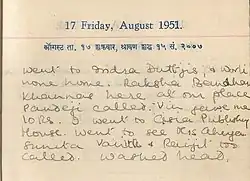 17 Friday, August 1951.
ऑगस्ट ता. १७ शुक्रवार, श्रावण शुद्ध १५ सं. २००७
went to Indra Duttjis, &
none home. Raksha
Khannas here at our place
Pandeji called. Viru gave me
10 Rs. I went to Publicity
House. went to see Kis Ahuja
Sunita & Ranjit too
called. Washed head.